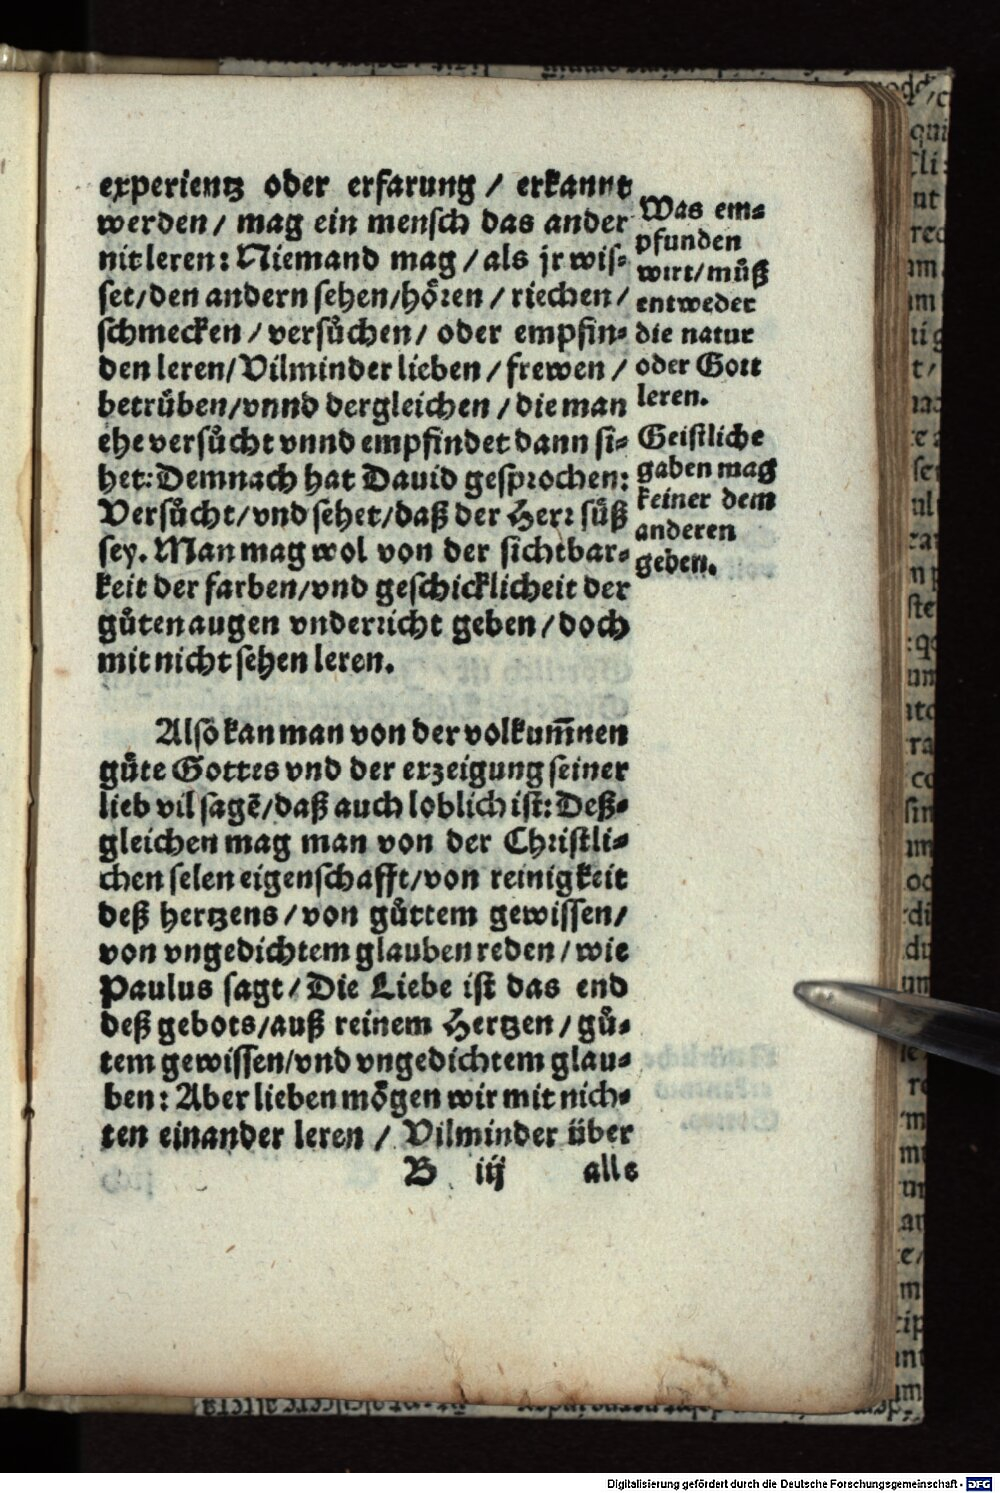 experientz oder erfarung / erkannt
werden / mag ein mensch das ander
nit leren: Niemand mag / als jr wis⸗
set/den andern sehen/hören / riechen /
schmecken / versůchen / oder empfin⸗
den leren/Vilminder lieben / frewen /
betrüben/vnnd dergleichen / die man
ehe versůcht vnnd empfindet dann si⸗
het: Demnach hat Dauid gesprochen:
Versůcht/vnd sehet/daß der Herr süß
sey. Man mag wol von der sichtbar⸗
keit der farben/vnd geschicklicheit der
gůten augen vnderricht geben / doch
mit nicht sehen leren.
Also kan man von der volkum̄nen
güte Gottes vnd der erzeigung seiner
lieb vil sagē/daß auch loblich ist: Deß⸗
gleichen mag man von der Christli⸗
chen selen eigenschafft/von reinigkeit
deß hertzens / von gůttem gewissen/
von vngedichtem glauben reden / wie
Paulus sagt / Die Liebe ist das end
deß gebots/auß reinem Hertzen / gů⸗
tem gewissen/vnd vngedichtem glau⸗
ben: Aber lieben mögen wir mit nich⸗
ten einander leren / Vilminder über
B iij alle
Was em⸗
pfunden
wirt/můß
entweder
die natur
oder Gott
leren.
Geistliche
gaben mag
keiner dem
anderen
geben.
Digitalisierung gefördert durch die Deutsche Forschungsgemeinschaft - DFG